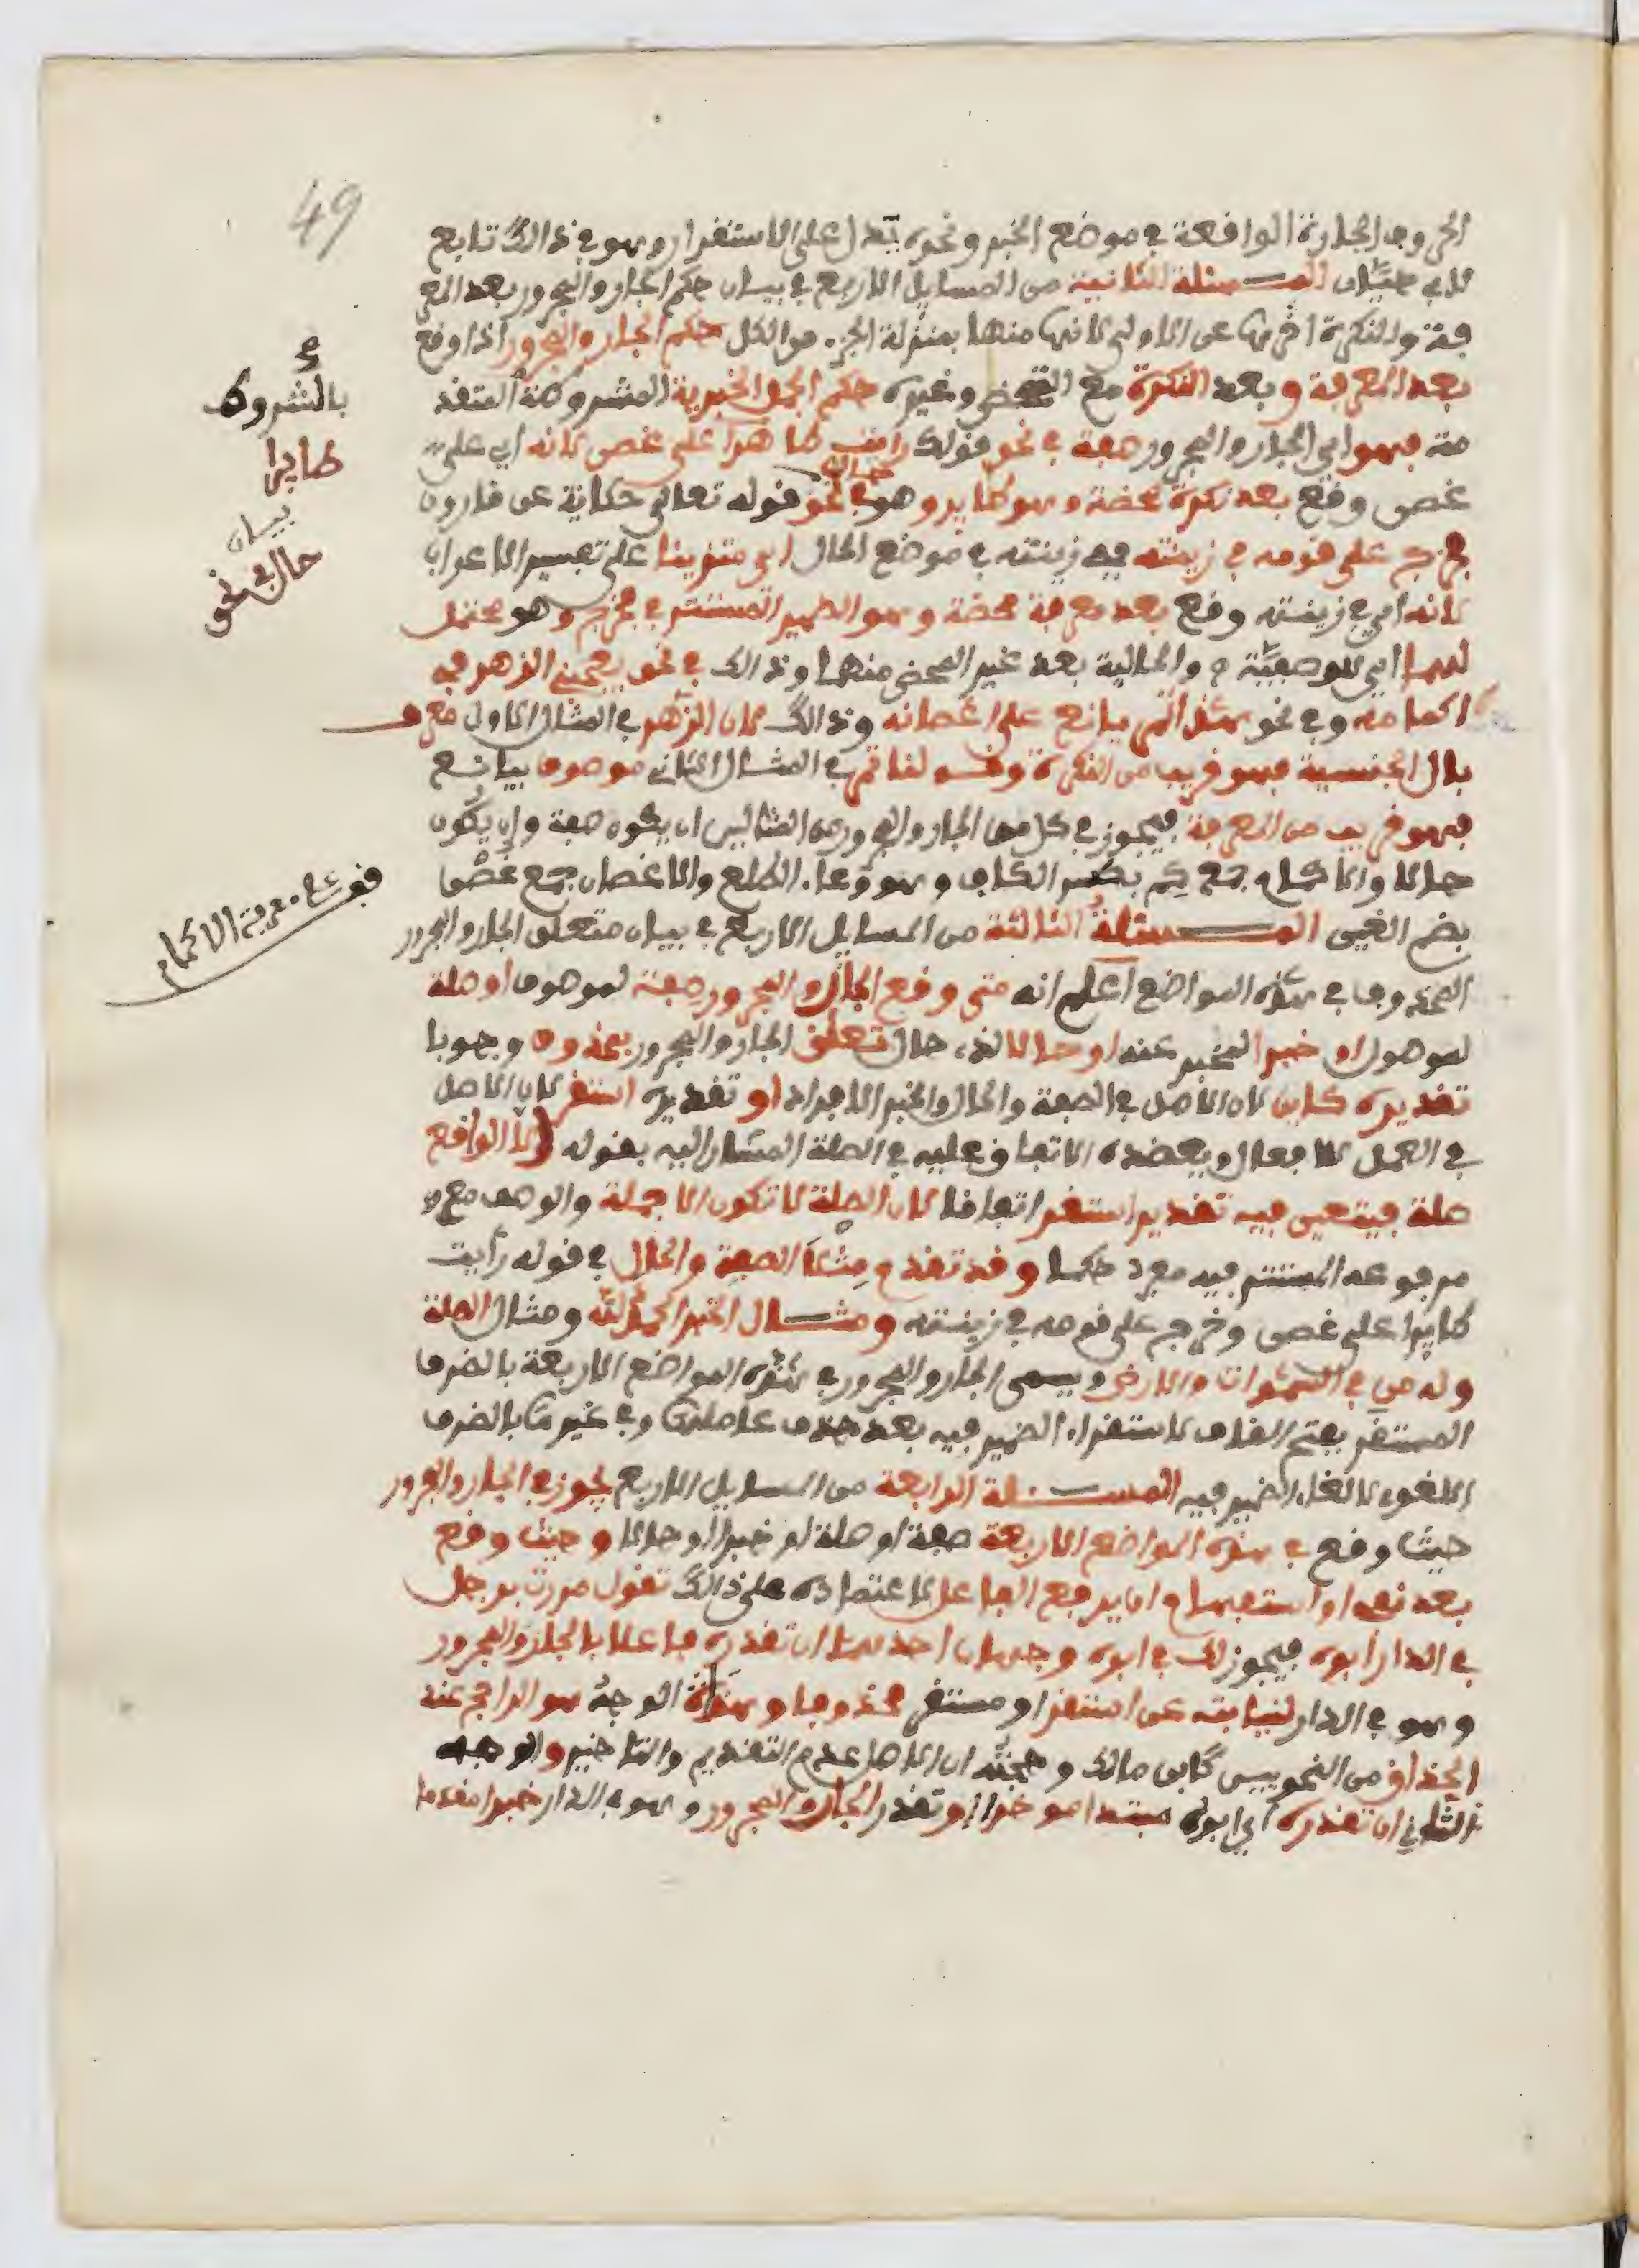 49
الحروف الجارة الواقعة في موضع الخبر ونحوه تدل على الاستقرار وهو في ذالك تابع
لابي حيان المسئلة الثانية من المسايل الاربع في بيان حكم الجار والمجرور بعد المعر
فة والنكرة اخرها عن الاولى لانها منها بمنزلة الجزء من الكل حكم الجار والمجرور اذا وقع
بعد المعرفة وبعد النكرة مع التمحض وغيره حكم الجمل الخبرية المشروطة المتقد
مة فهو اي الجار والمجرور صفة في نحو قولك رايت طايرا على غصن لانه اي على
غصن وقع بعد نكرة محضة وهو طاير وهو حال في نحو قوله تعالى حكاية عن قارون
فخرج على قومه في زينته ففي زينته في موضع الحال اي متزينا على تفسير الاعراب
لانه اي في زينته وقع بعد معرفة محضة وهو الضمير المستتر في فخرج وهو محتمل
لهما اي للوصفية والحالية بعد غير المحض منهما وذالك في نحو يعجبني الزهر في
اكمامه وفي نحو هذا ثمر يانع على اغصانه وذالك لان الزهر في المثال الاول معرف
بال الجنسية فهو قريب من النكرة وقولنا ثمر في المثال الثاني موصوف بيانع
فهو قريب من المعرفة فيجوز في كل من الجار والمجرور من المثالين ان يكون صفة وان يكون
حالا والاكمام جمع كم بكسر الكاف وهو وعاء الطلع والاغصان جمع غصن
بضم الغين المسئلة الثالثة من المسايل الاربع في بيان متعلق الجار والمجرور
المحذوف في هذه المواضع اعلم انه متى وقع الجار والمجرور صفة لموصوف او صلة
لموصول او خبرا لمخبر عنه او حالا لذي حال تعلق الجار والمجرور بمحذوف وجوبا
تقديره كاين لان الاصل في الصفة والحال والخبر الافراد او تقديره استقر لان الاصل
في العمل للافعال ويعضده الاتفاق عليه في الصلة المشار اليه بقوله الا الواقع
صلة فيتعين فيه تقدير استقر اتفاقا لان الصلة لا تكون الا جملة والوصف مع
مرفوعه المستتر فيه مفرد حكما وقد تقدم مثلا الصفة والحال في قوله رايت
طايرا على غصن وخرج على قومه في زينته ومثال الخبر الحمد لله ومثال الصلة
وله من في السموات والارض ويسمى الجار والمجرور في هذه المواضع الاربعة بالضرف
المستقر بفتح القاف لاستقرار الضمير فيه بعد حذف عاملها وفي غيرها بالضرف
اللغو لالغاء الضمير فيه المسئلة الرابعة من المسايل الاربع يجوز في الجار والمجرور
حيث وقع في هذه المواضع الاربعة صفة او صلة او خبرا او حالا وحيث وقع
بعد نفي او استفهام ان يرفع الفاعل لاعتماده على ذالك تقول مررت برجل
في الدار ابوه فيجوز لك في ابوه وجهان احدهما ان تقدره فاعلا بالجار والمجرور
وهو في الدار لنيابته عن استقر او مستقر محذوفا وهذا الوجه هو الراجح عند
الحذاق من النحويين كابن مالك وحجته ان الاصل عدم التقديم والتاخير والوجه
الثاني ان تقدره اي ابوه مبتدا موخرا وتقدر الجار والمجرور وهو في الدار خبرا مقدما
بالشروط
طايرا
بيان
حال في نحو
قف على معرفة الاكمام